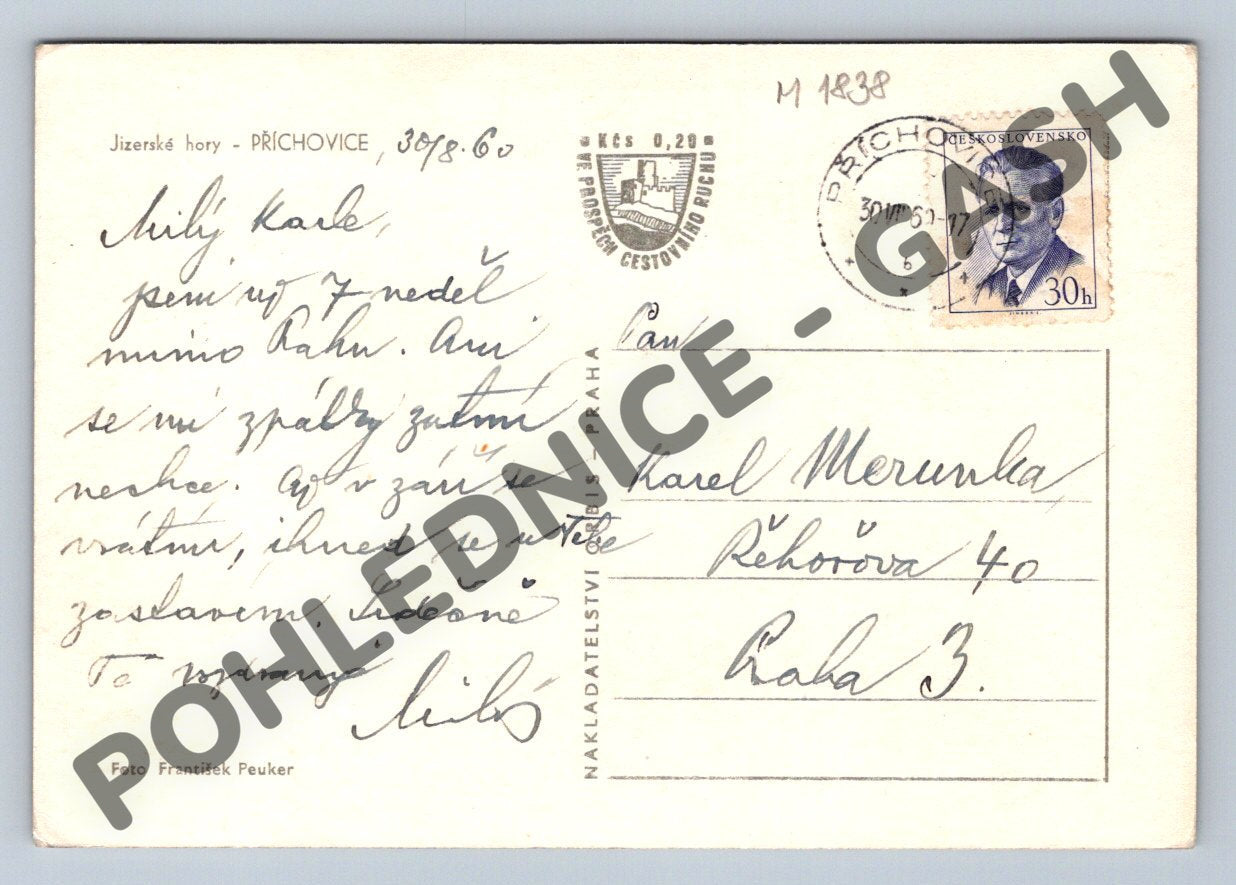 M 1838
Jizerské hory - PŘÍCHOVICE, 30/8. 60
Kčs 0,20
VE PROSPĚCH CESTOVNÍHO RUCHU
PŘÍCHOVICE
30.VIII.60-17
b
ČESKOSLOVENSKO
30h
Milý Karle,
jsem už 7 neděl
mimo Prahu. Ani
se mi zpátky zatím
nechce. Až v září se
vrátím, ihned se u Tebe
zastavím. Srdečně
Tě
Miloš
Foto František Peuker
NAKLADATELSTVÍ ORBIS - PRAHA
Pan
Karel Merunka
Řehořova 40
Praha 3.
POHLEDNICE - GASH